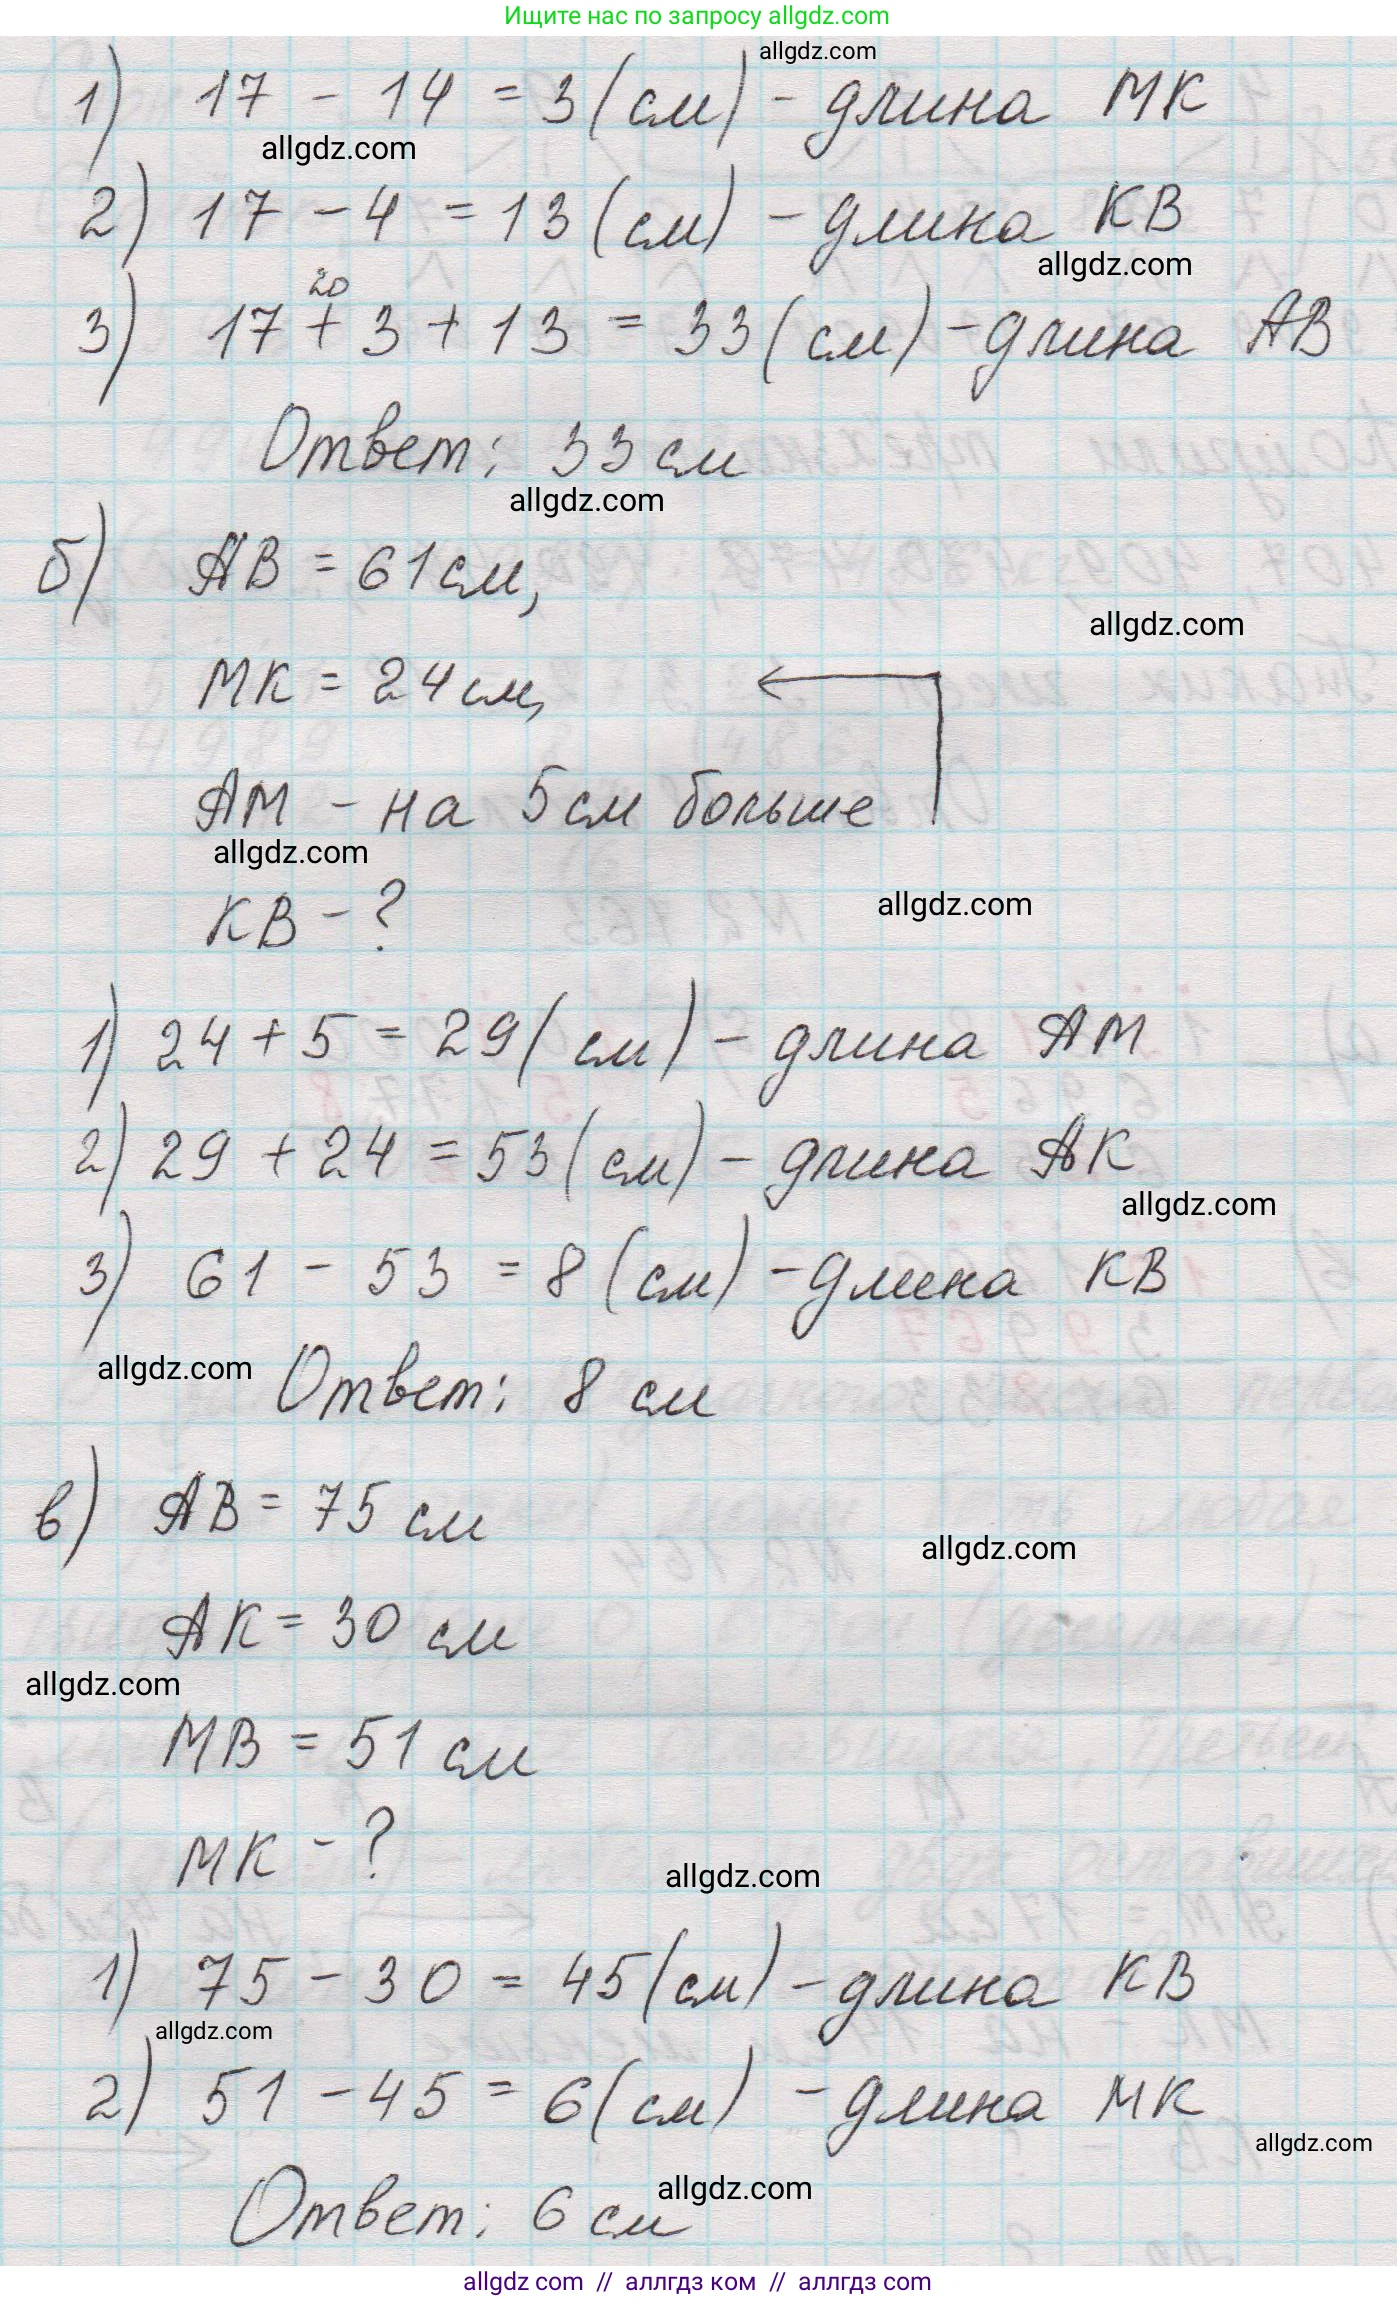 Ищите нас по запросу allgdz.com
allgdz.com
1) 17 - 14 = 3 (см) - длина МК
allgdz.com
2) 17 - 4 = 13 (см) - длина КВ
allgdz.com
20
3) 17 + 3 + 13 = 33 (см) - длина АВ
Ответ: 33 см
allgdz.com
б) АВ = 61 см,
allgdz.com
МК = 24 см,
АМ - на 5 см больше
allgdz.com
КВ - ?
allgdz.com
1) 24 + 5 = 29 (см) - длина АМ
2) 29 + 24 = 53 (см) - длина АК
allgdz.com
3) 61 - 53 = 8 (см) - длина КВ
allgdz.com
Ответ: 8 см
в) АВ = 75 см
allgdz.com
АК = 30 см
allgdz.com
МВ = 51 см
МК - ?
allgdz.com
1) 75 - 30 = 45 (см) - длина КВ
allgdz.com
2) 51 - 45 = 6 (см) - длина МК
allgdz.com
Ответ: 6 см
allgdz.com
allgdz com // аллгдз ком // аллгдз com